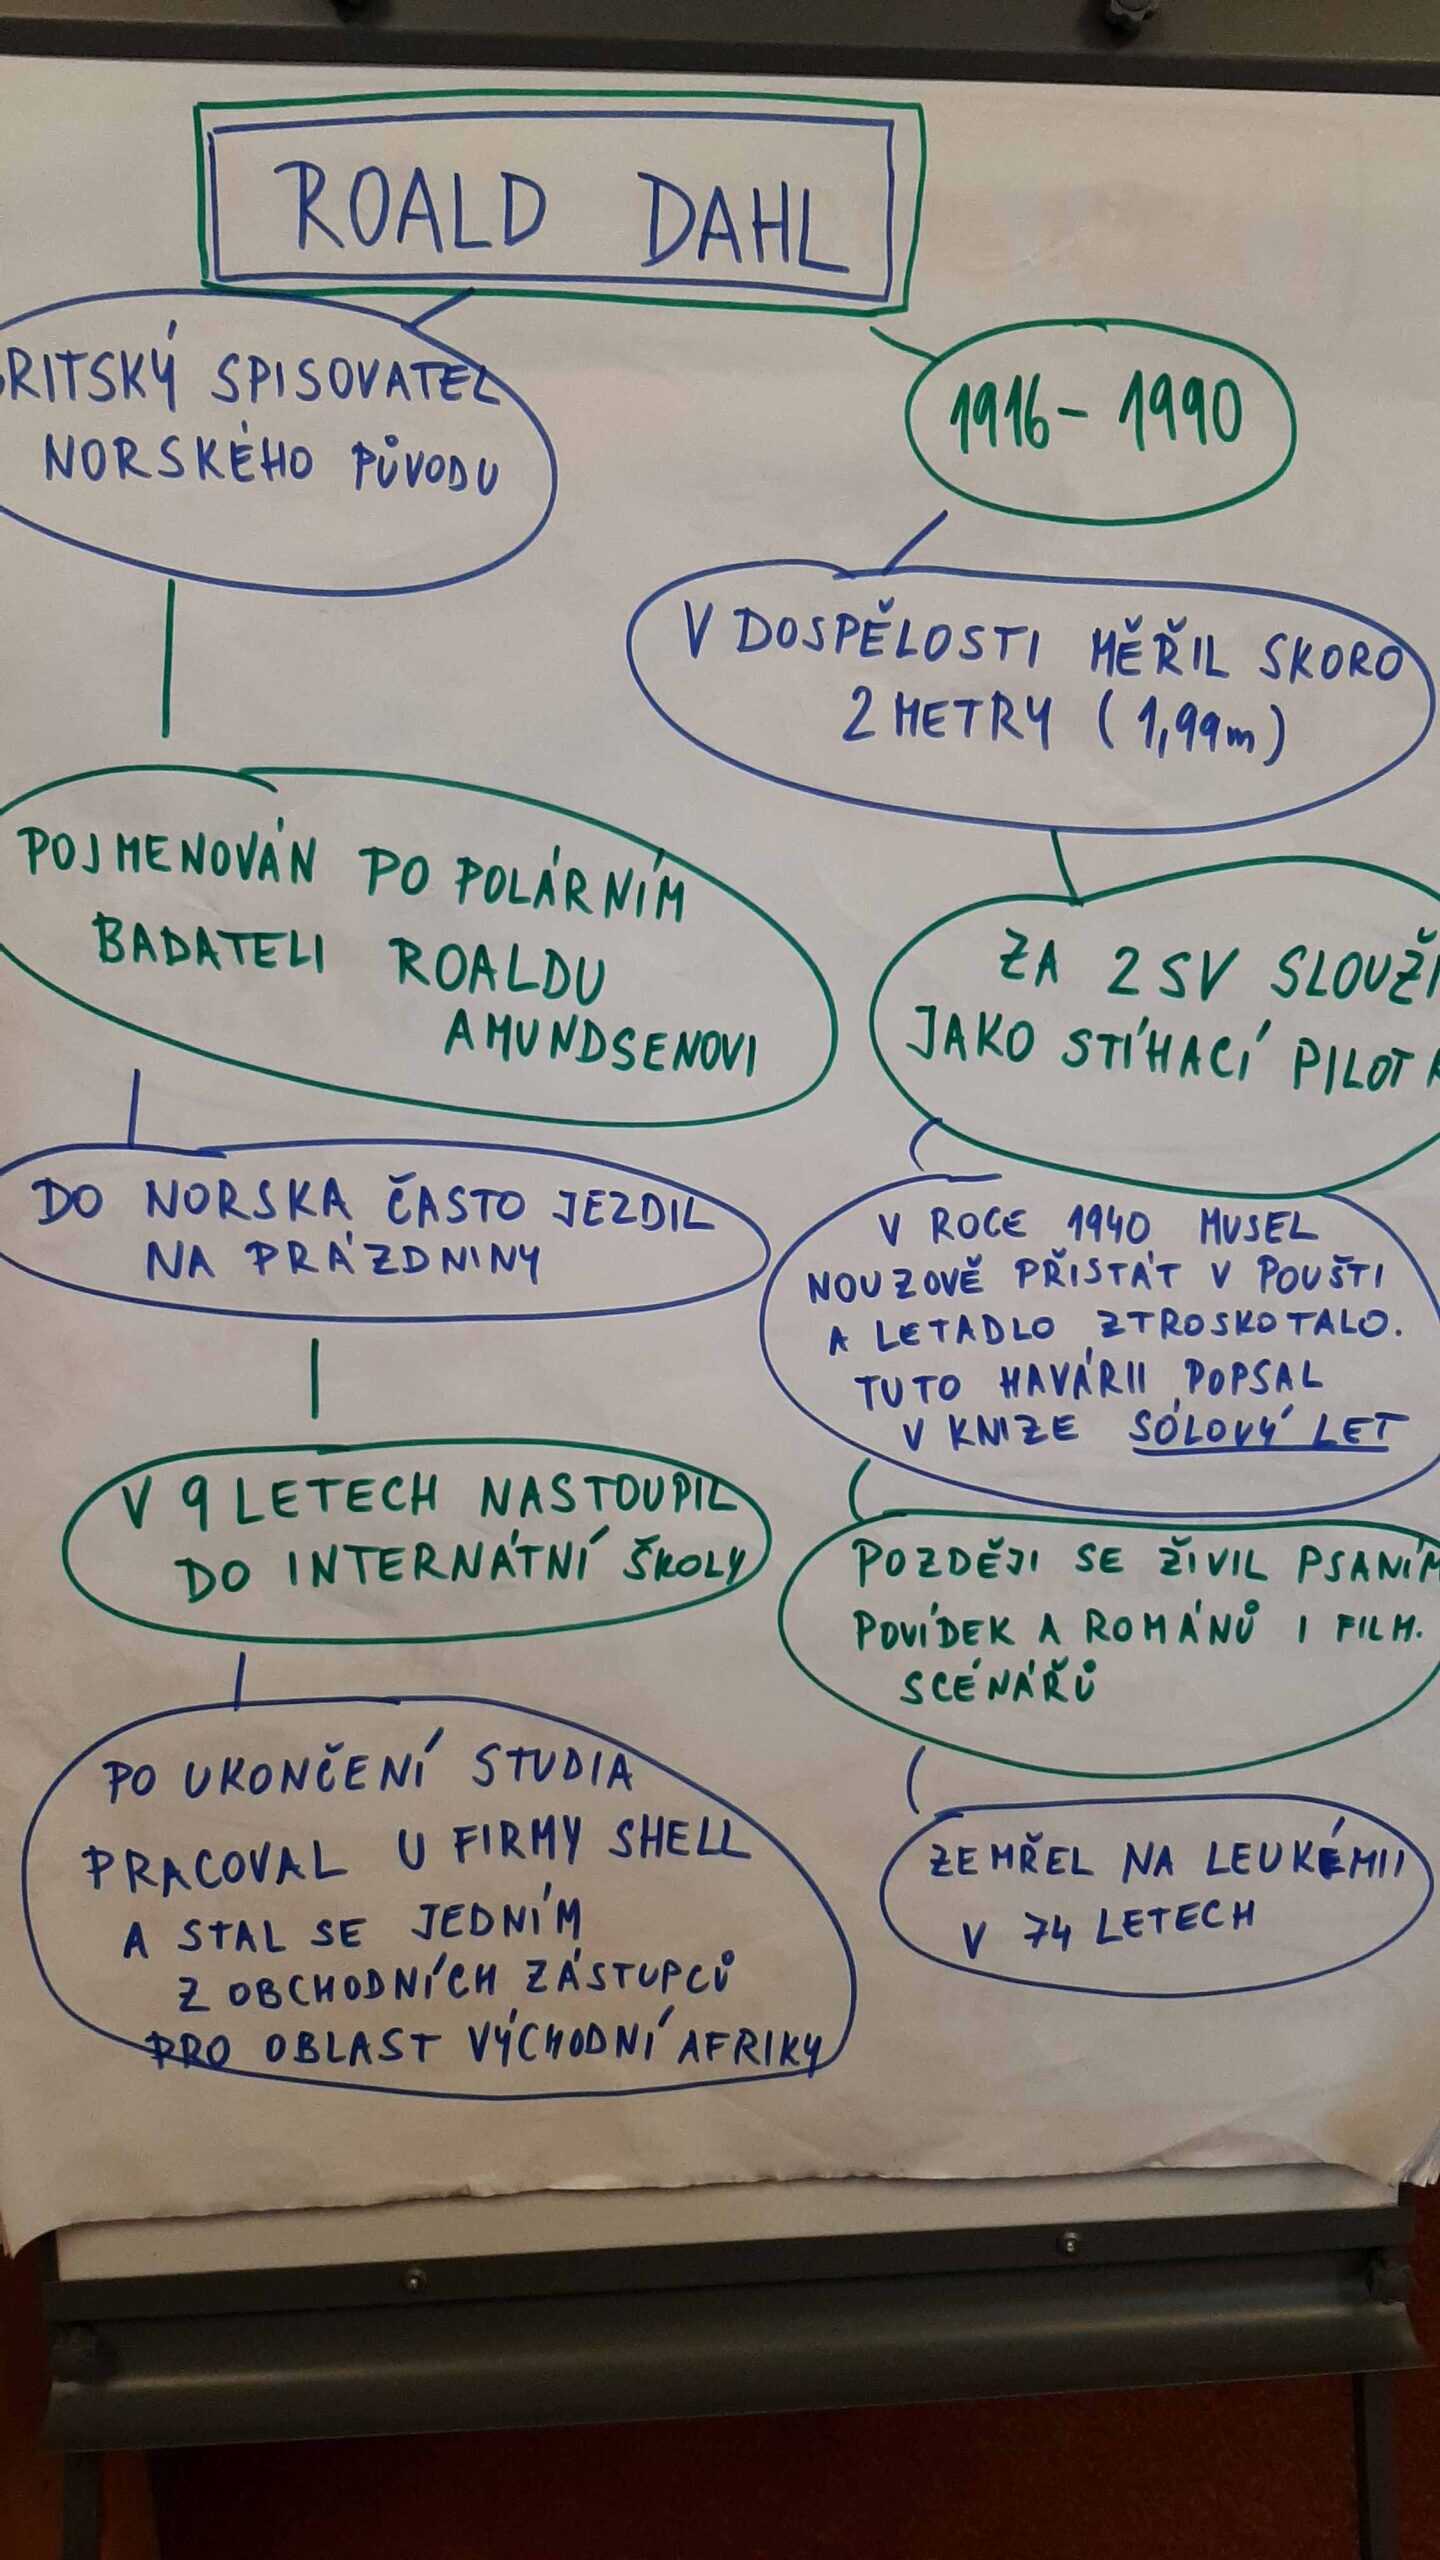 ROALD DAHL
BRITSKÝ SPISOVATEL
NORSKÉHO PŮVODU
POJMENOVÁN PO POLÁRNÍM
BADATELI ROALDU
AMUNDSENOVI
DO NORSKA ČASTO JEZDIL
NA PRÁZDNINY
V 9 LETECH NASTOUPIL
DO INTERNÁTNÍ ŠKOLY
PO UKONČENÍ STUDIA
PRACOVAL U FIRMY SHELL
A STAL SE JEDNÍM
Z OBCHODNÍCH ZÁSTUPCŮ
PRO OBLAST VÝCHODNÍ AFRIKY
1916 - 1990
V DOSPĚLOSTI MĚŘIL SKORO
2 METRY (1,99m)
ZA 2SV SLOUŽI
JAKO STÍHACÍ PILOT
V ROCE 1940 MUSEL
NOUZOVĚ PŘISTÁT V POUŠTI
A LETADLO ZTROSKOTALO.
TUTO HAVÁRII POPSAL
V KNIZE SÓLOVÝ LET
POZDĚJI SE ŽIVIL PSANÍM
POVÍDEK A ROMÁNŮ I FILM.
SCÉNÁŘŮ
ZEMŘEL NA LEUKÉMII
V 74 LETECH